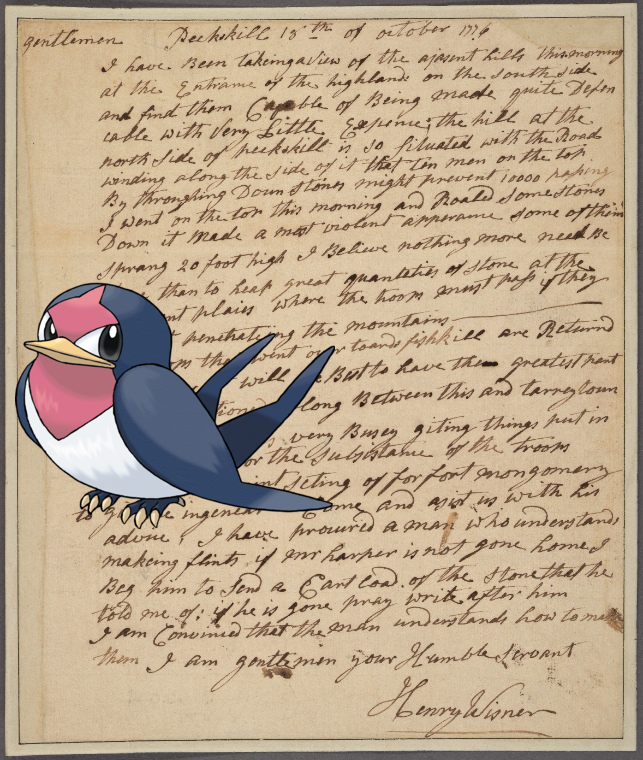 gentlemen Peekskill 18th of october 1776
I have Been takeing a View of the ajasent hills this morning
at the Entrame of the highlands on the south side
and find them Capable of Being made quite Defen
cable with Very Little Expence; the hill at the
north side of peekskill is so situated with the Road
winding along the side of it that ten men on the top
By throughing Down stones might prevent 10000 pasing
I went on the top this morning and Roald some stones
Down it made a most violent apperance some of them
sprang 20 foot high I Believe nothing more need Be
than to heap great quanteties of stone at the
nt plaies where the troops must pass if they
penetrating the mountains
ps that went over toards fishkill are Returnd
will Best to have the greatest part
tioned along Between this and tarreytown
very Busey giting things put in
or the subsistance of the troops
int seting of for fort montgomery
to ingenear Come and asist us with his
advice, I have procured a man who understands
makeing flints if mr harper is not gone home I
Beg him to send a Cart load of the stone that he
told me of: if he is gone pray write after him
I am Convinced that the man understands how to make
them I am gentlemen your Humble Servant
Henry Wisner